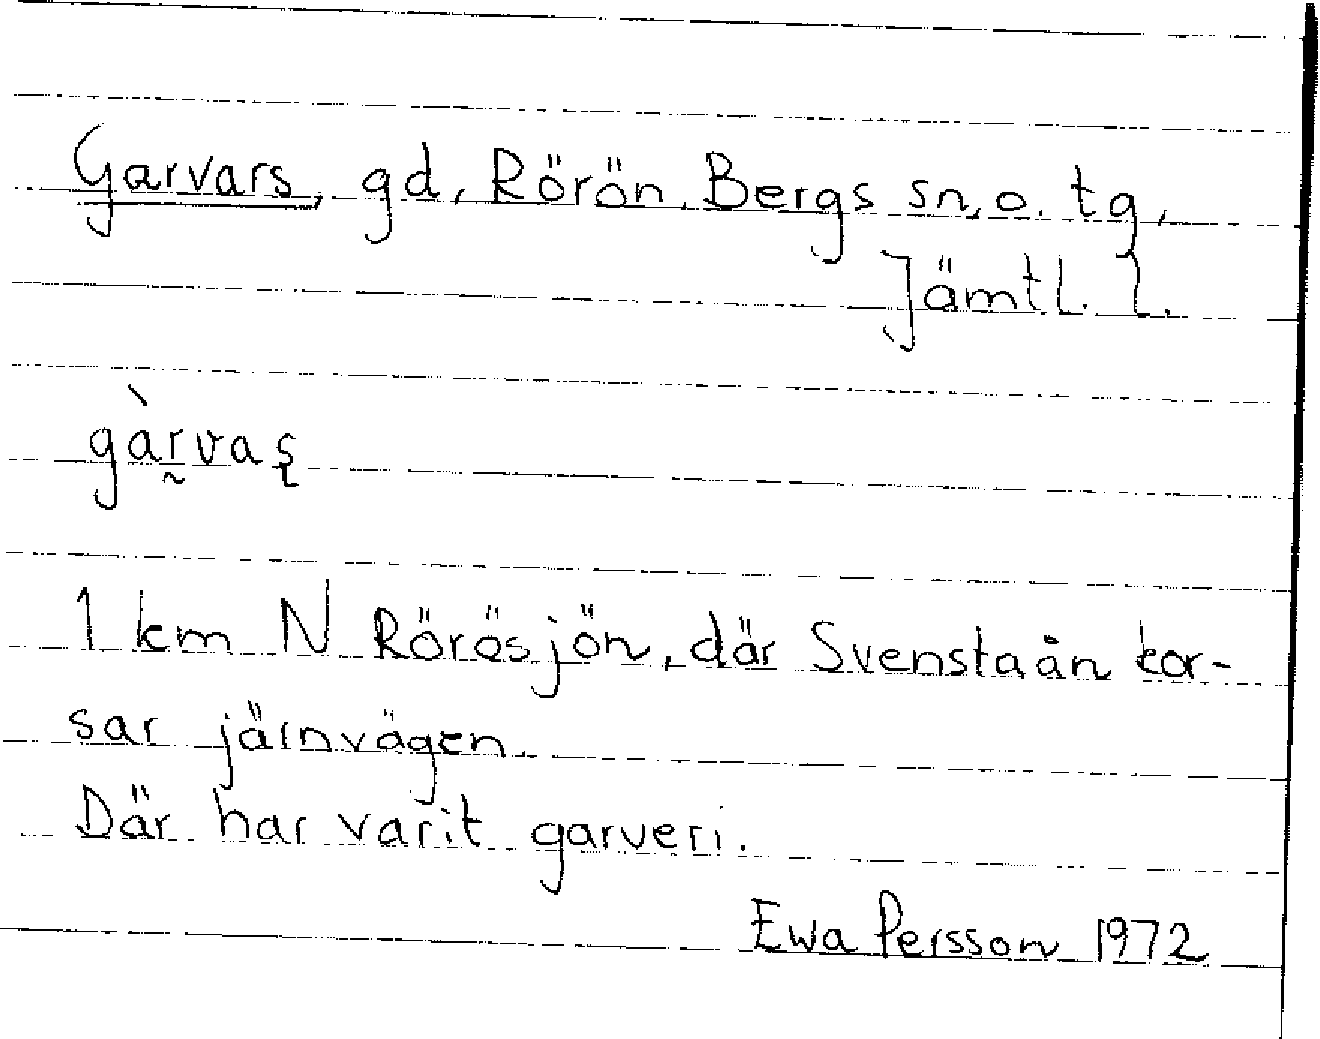 Garvars, gd, Rörön, Bergs sn, o. tg,
Jämtl. l.
gàr̰vaș
1 km N Rörösjön, där Svenstaån kor-
sar järnvägen.
Där har varit garveri.
Ewa Persson 1972